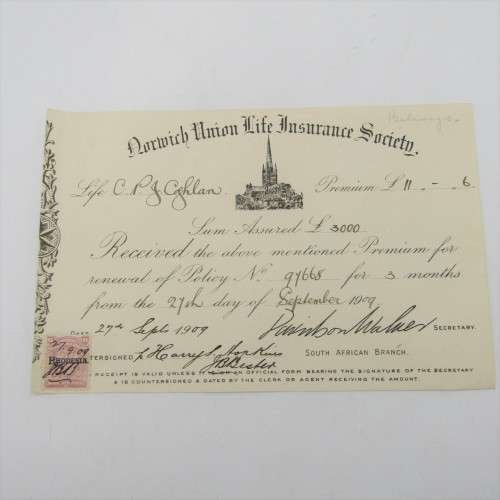 Norwich Union Life Insurance Society.
Life C P J Coghlan. Premium £ 11 - - 6
Sum Assured £ 3000
Received the above mentioned Premium for
renewal of Policy No. 97668 for 3 months
from the 27th day of September 1909.
Date 27th Sept 1909 SECRETARY.
27.9.09
RHODESIA.
TERSIGNED Harry S Hopkins SOUTH AFRICAN BRANCH.
RECEIPT IS VALID UNLESS IT IS ON AN OFFICIAL FORM BEARING THE SIGNATURE OF THE SECRETARY
& IS COUNTERSIGNED & DATED BY THE CLERK OR AGENT RECEIVING THE AMOUNT.